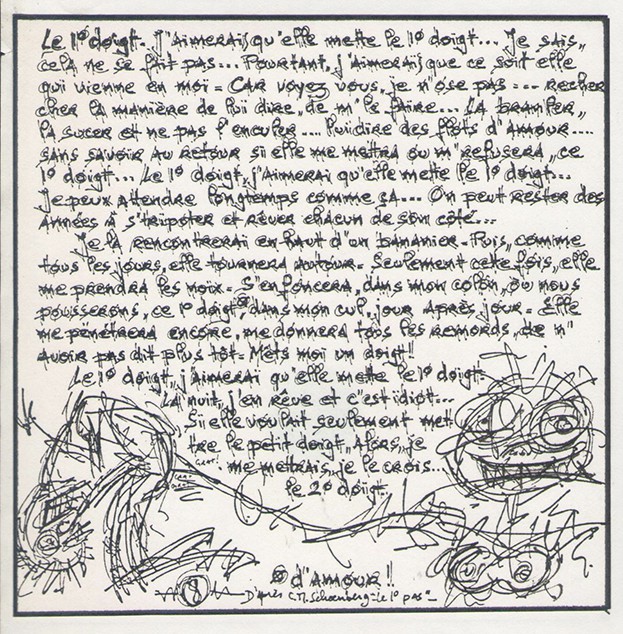 Le 1° doigt. J'aimerais qu'elle mette le 1° doigt... Je sais,,
cela ne se fait pas... Pourtant, j'aimerais que ce soit elle
qui vienne en moi = Car voyez vous, je n'ose pas ... recher
cher la manière de lui dire, de m'le faire... La branler,,
la sucer et ne pas l'enculer .... Lui dire des flots d'amour....
sans savoir au retour si elle me mettra ou m'refusera,, ce
1° doigt... Le 1° doigt, j'aimerai qu'elle mette le 1° doigt...
Je peux attendre longtemps comme ça... On peut rester des
années à s'tripoter et rêver chacun de son côté...
Je la rencontrerai en haut d'un bananier = Puis,, comme
tous les jours, elle tournera autour = Seulement cette fois,, elle
me prendra les noix = S'enfoncera, dans mon colon,, où nous
pousserons,, ce 1° doigt, dans mon cul, jour après jour = Elle
me pénétrera encore, me donnera tous les remords, de n'
avoir pas dit plus tôt = Mets moi un doigt!!
Le 1° doigt,, j'aimerai qu'elle mette le 1° doigt.
La nuit, j'en rêve et c'est idiot...
Si elle voulait seulement met
tre le petit doigt,, Alors,, je
me mettrais,, je le crois...
le 2° doigt..
d'amour!!
8
D'après C.M. Schoenberg = Le 1° pas =